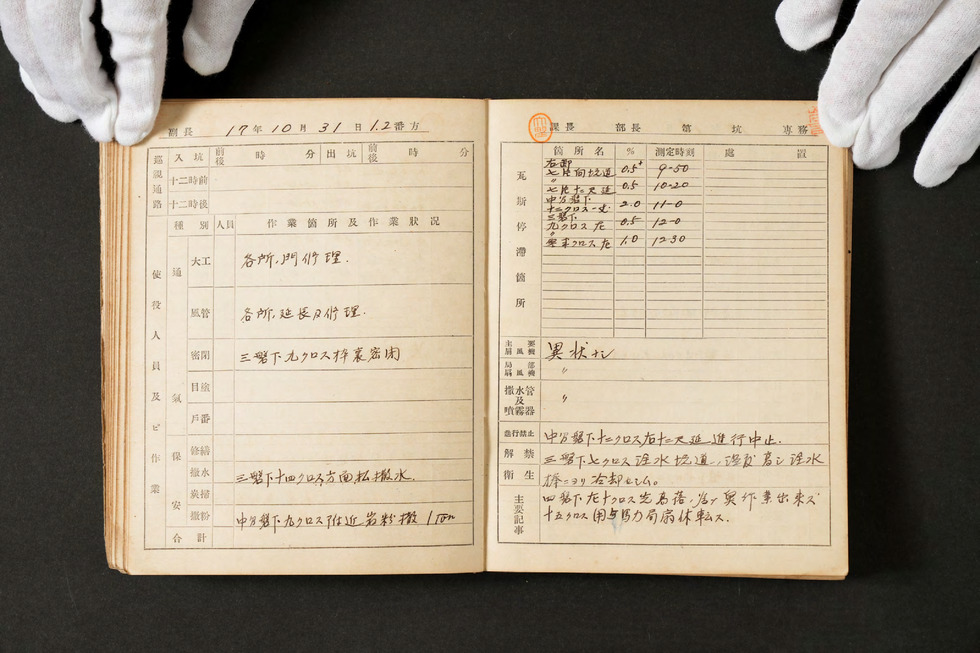 副長 17年10月31日 1.2番方
巡視通路 入坑 前後 時 分 出坑 前後 時 分
十二時前
十二時後
種別 人員 作業箇所及作業状况
使役人員及ビ作業
通気
大工 各所、門修理.
風管 各所、延長及修理.
密閉 三盤下九クロス枠裏密閉
目塗
戸番
保安
修繕
撒水 三盤下十四クロス方面払撒水.
炭掃
撒粉 中分盤下九クロス附近岩粉撒 1 Ton
合計
課長 部長 第 坑 専務
瓦斯停滞箇所
箇所名 % 測定時刻 處置
右卸
七片向坑道 0.5+ 9-50
〃
七片十二尺延 0.5 10-20
中分盤下
十二クロス 2.0 11-0
三盤下
九クロス左 0.5 12-0
〃
クロス左 1.0 12-30
主要扇風機 異状ナシ
局部扇風機 〃
撒水管及噴霧器 〃
進行禁止 中分盤下十二クロス右十二尺延進行中止.
解禁 三盤下七クロス 坑道、湿度高シ
衛生 ヨリ冷却セシム。
主要記事 四盤下左十クロス先 落ノ為メ奥作業出来ズ
十五クロス 馬力局扇休転ス.